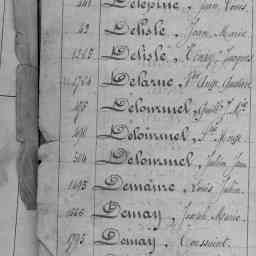 Delépine, Jean Louis
49 Delisle, Jean Marie
1315 Delisle, Henry Jacques
1764 Delarue, Pre Ange
498 Delourmel
491 Delourmel, Pre Ange
504 Delourmel, Julien Jean
1493 Demaine, Louis Julien
1666 Demay, Joseph Marie
1795 Demay, Toussaint